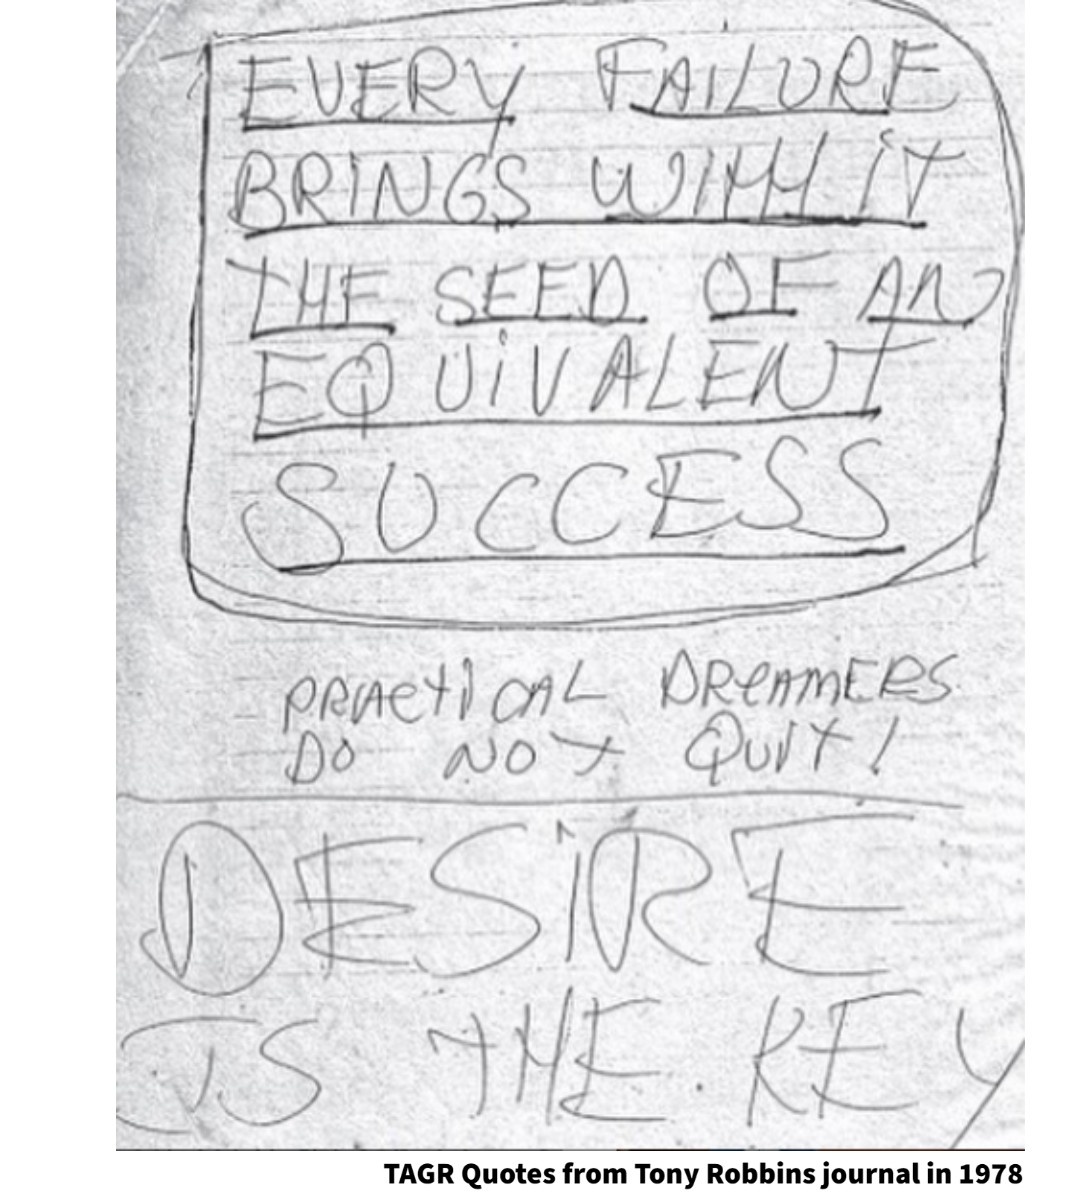 EVERY FAILURE
BRINGS WITH IT
THE SEED OF AN
EQUIVALENT
SUCCESS
PRACTICAL DREAMERS
DO NOT QUIT!
DESIRE
IS THE KEY
TAGR Quotes from Tony Robbins journal in 1978